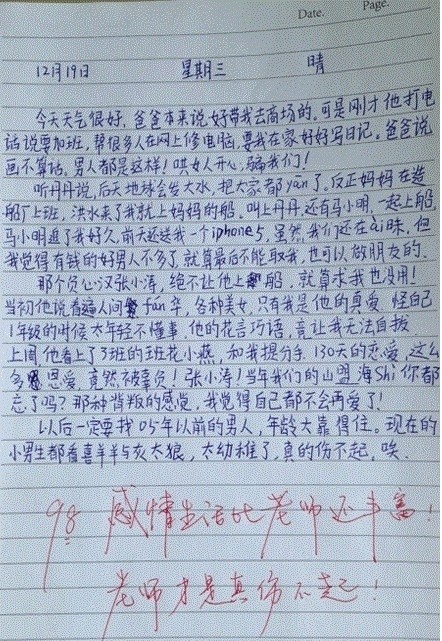 Date. Page.
12月19日 星期三 晴
今天天气很好,爸爸本来说好带我去商场的。可是刚才他打电
话说要加班,帮很多人在网上修电脑,要我在家好好写日记。爸爸说
画不算话,男人都是这样!哄女人开心,骗我们!
听丹丹说,后天地球会发大水,把大家都yān了。反正妈妈在造
船厂上班,洪水来了我就上妈妈的船。叫上丹丹,还有马小明,一起上船,
马小明追了我好久,前天还送我一个iphone5,虽然我们还在ài昧,但
我觉得有钱的好男人不多了,就算最后不能取我,也可以做朋友的。
那个负心汉张小涛,绝不让他上船,就算求我也没用!
当初他说看遍人间fán华,各种美女,只有我是他的真爱,怪自己
1年级的时候太年轻不懂事,他的花言巧语,竟让我无法自拔
上周他看上了3班的班花小燕,和我提分手,130天的恋爱,这么
多恩爱,竟然被辜负!张小涛!当年我们的山盟海Shi你都
忘了吗?那种背叛的感觉,我觉得自己都不会再爱了!
以后一定要找05年以前的男人,年龄大靠得住。现在的
小男生都看喜羊羊与灰太狼,太幼稚了,真的伤不起,唉.
98 感情生活比老师还丰富!
老师才是真伤不起!